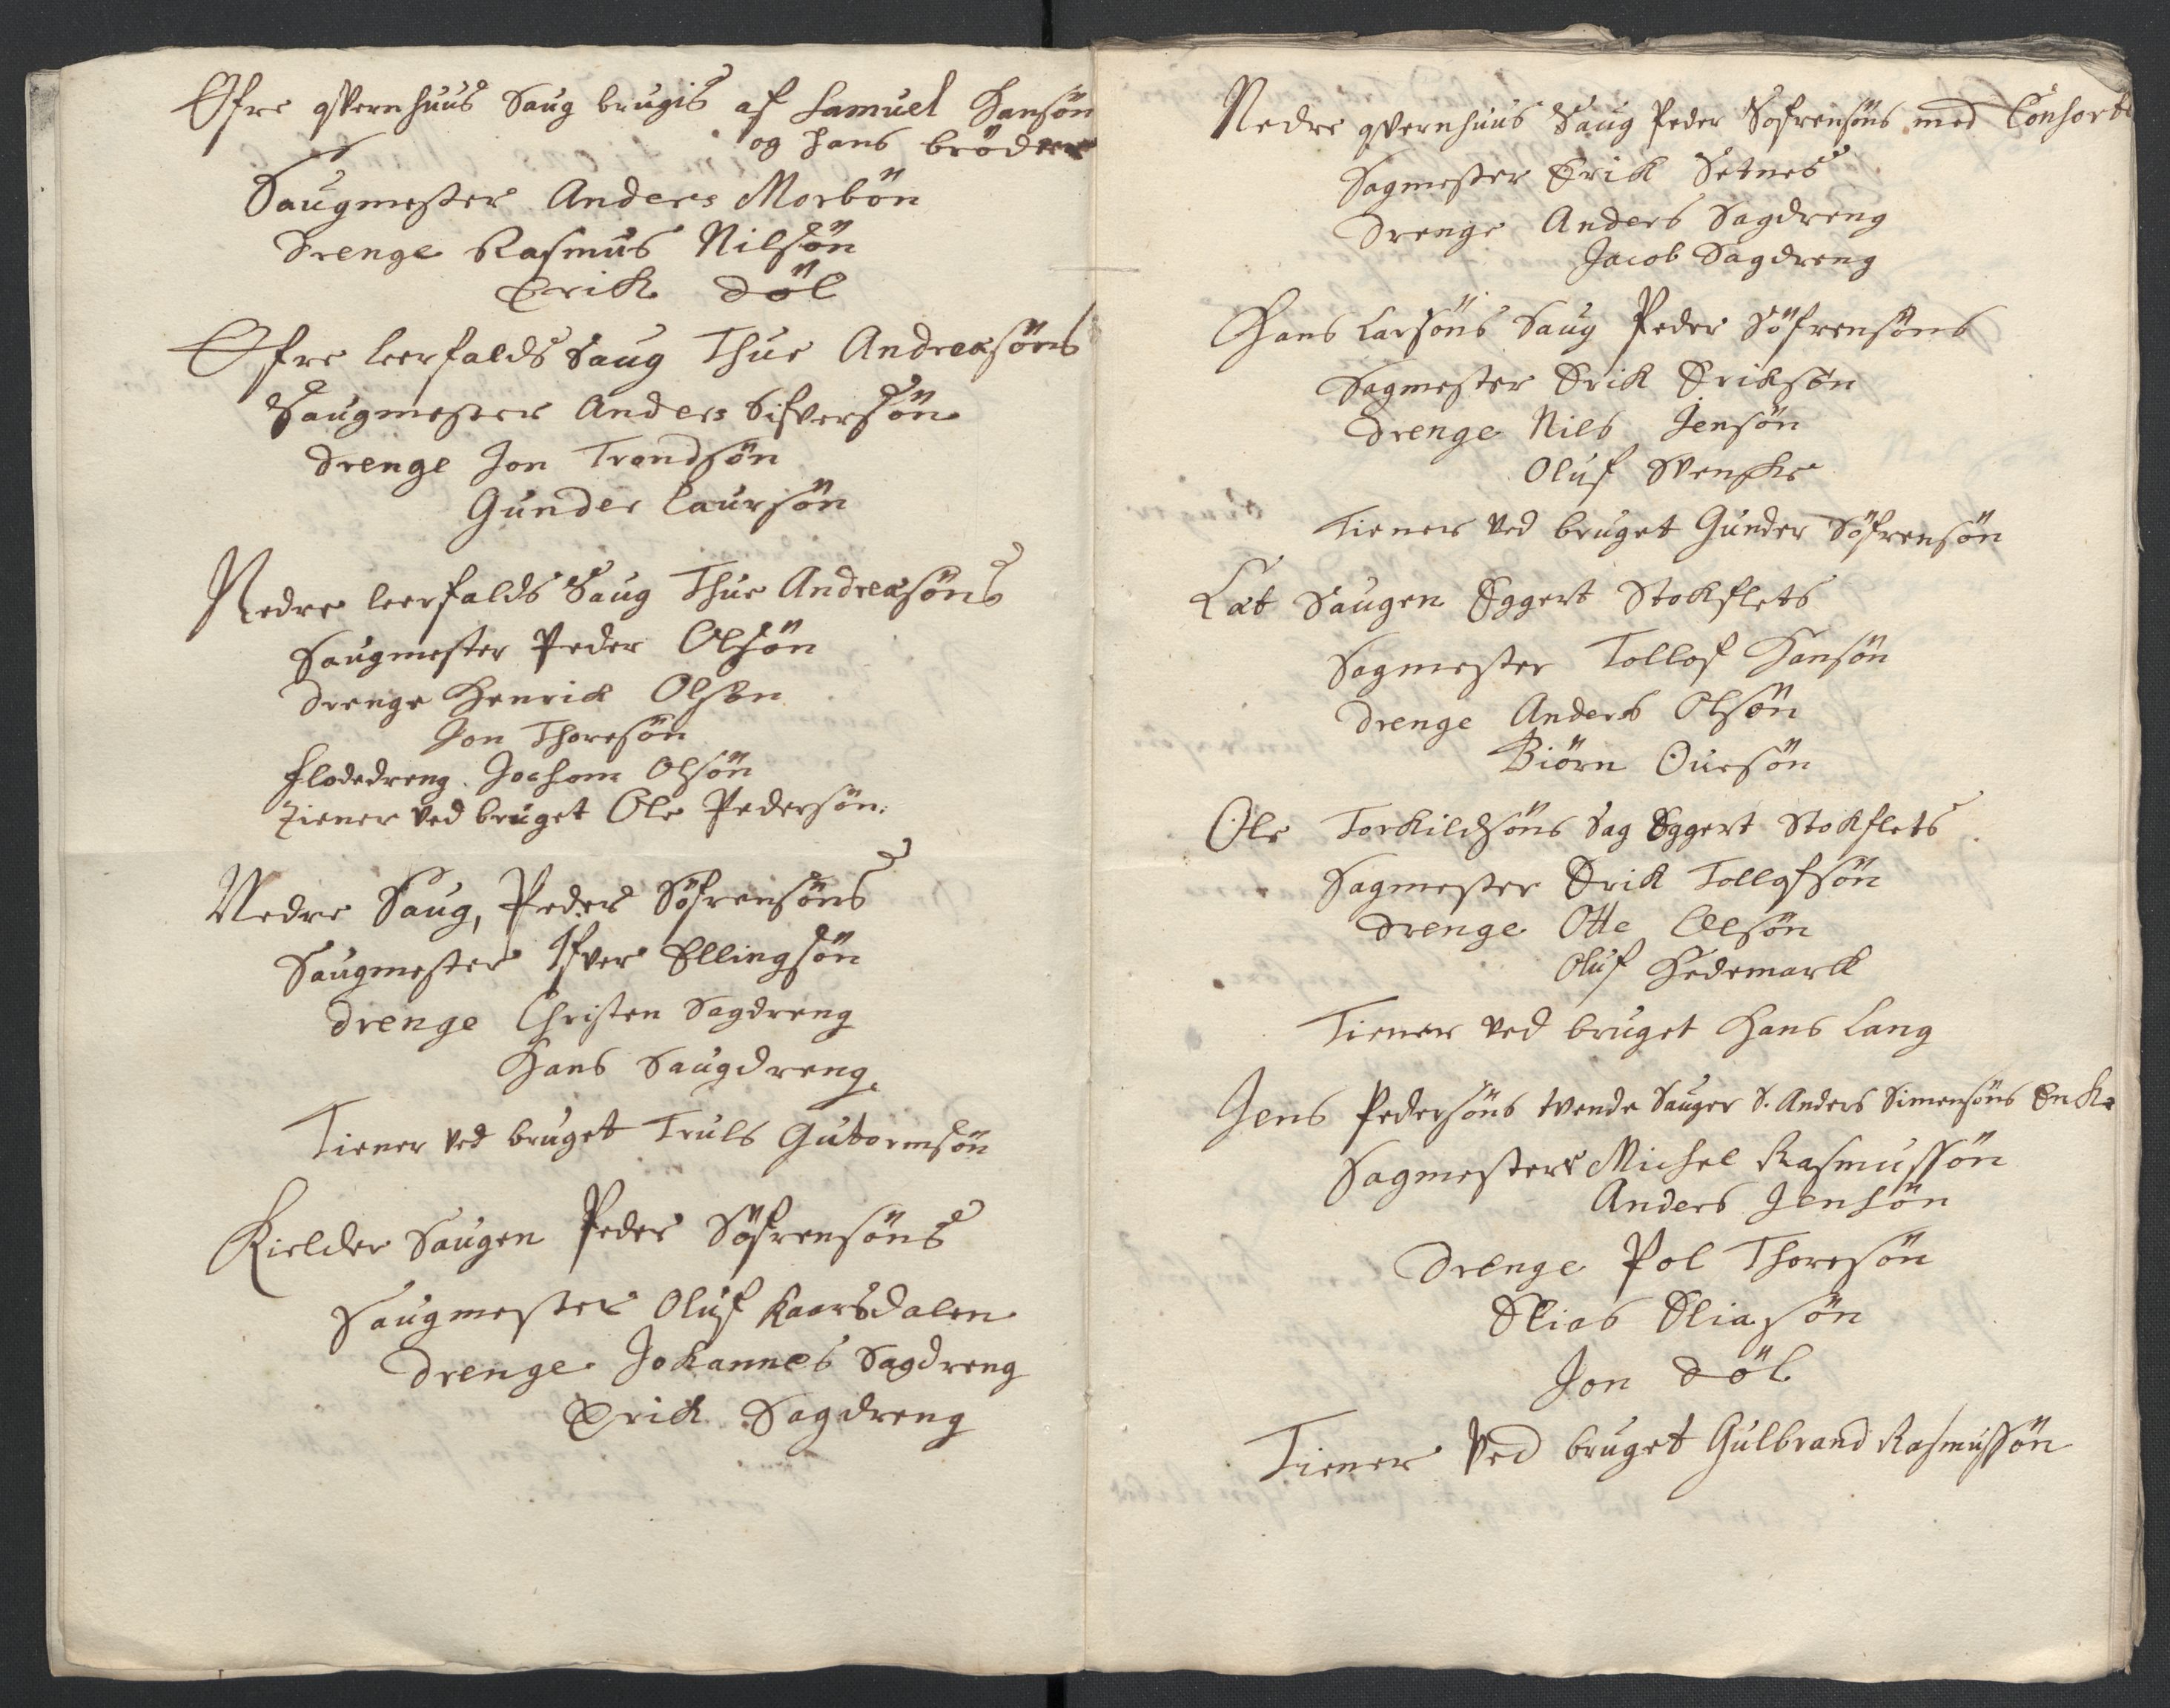 Øfre qvernhuus Saug brugis af Samuel Hansøn
og hans brödrer
Saugmester Anders Morbön
Drenge Rasmus Nilsön
Erik Döl
Øfre leerfalds Saug Thue Andreasöns
Saugmester Anders Sifversön
Drenge Jon Trondsön
Gunder Laursön
Nedre leerfalds Saug Thue Andreasöns
Saugmester Peder Olsön
Drenge Henrick Olsön
Jon Thoresön
flodedreng Jochom Olsön
Tiener ved bruget Ole Pedersön.
Nedre Saug, Peder Söfrensöns
Saugmester Ifver Ellingsön
Drenge Christen Sagdreng
Hans Saugdreng.
Tiener ved bruget Truls Gutormsön
Kielder Saugen Peder Söfrensöns
Saugmester Oluf Kaarsdalen
Drenge Johannes Sagdreng
Erick Sagdreng
Nedre qvernhuus Saug Peder Sofrensöns med Consort
Sagmester Erik Setnes
Drenge Anders Sagdreng
Jacob Sagdreng
Hans Larsöns Saug Peder Söfrensöns
Sagmester Erik Eriksön
Drenge Nils Jensön
Oluf Svenske
Tiener ved bruget Gunder Söfrensön
Lat Saugen Eggert Stokflets
Sagmester Tollof Hansön
Drenge Anders Olsön
Biörn Ouesön
Ole Torkildsöns Sag Eggert Stokflets
Sagmester Erik Tollofsön
Drenge Otte Olsön
Oluf Hedemarck
Tiener ved bruget Hans Lang
Jens Pedersöns tvende Sauger S. Anders Simensöns Enke
Sagmestere Michel Rasmussön
Anders Jensön
Drenge Pol Thoresön
Elias Eliasön
Jon Döl
Tiener Ved bruget Gulbrand Rasmussön